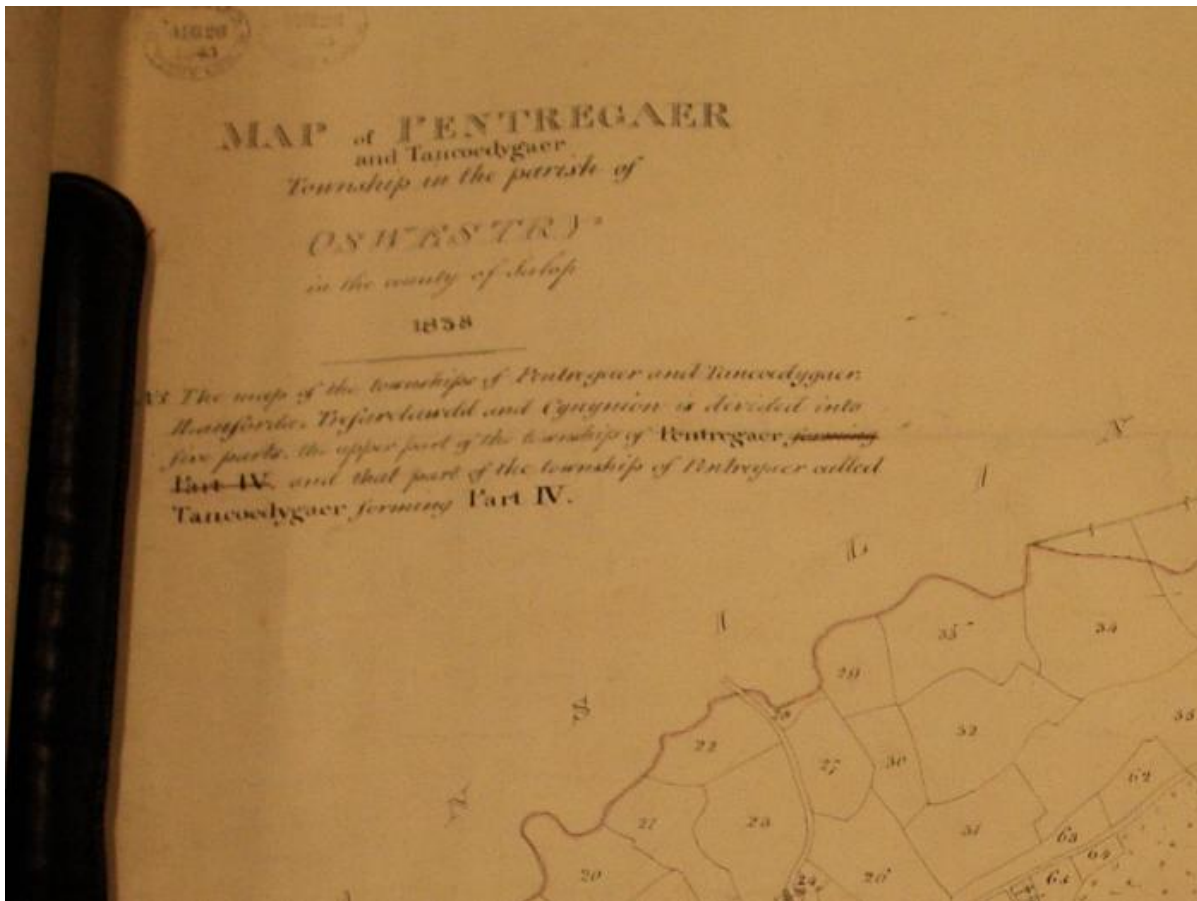 AUG 26
43
MAP of PENTREGAER
and Tancoedygaer
Township in the parish of
OSWESTRY
in the county of Salop
1838
NB The map of the townships of Pentregaer and Tancoedygaer,
Trefarclawdd and Cynynion is devided into
five parts, the upper part of the township of Pentregaer forming
Part IV, and that part of the township of Pentregaer called
Tancoedygaer forming Part IV.
N
I
L
I
35
34
29
33
28
22
32
27
30
62
21
23
31
63
64
20
24
26
65